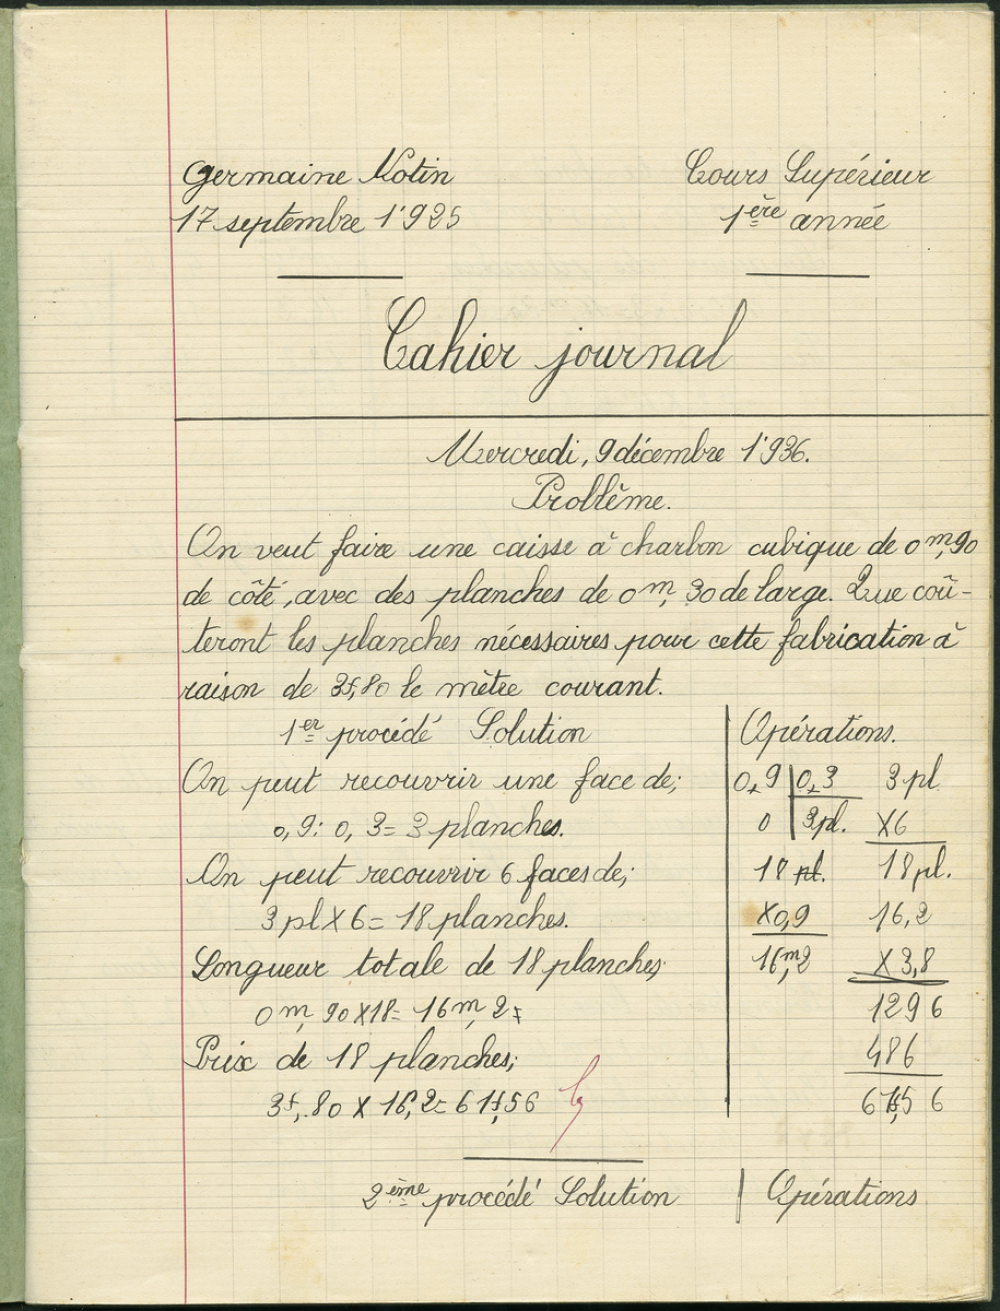 Germaine Notin
Cours Supérieur
17 septembre 1925
1ère année
Cahier journal
Mercredi, 9 décembre 1936.
Problème.
On veut faire une caisse à charbon cubique de 0m,90
de côté, avec des planches de 0m,30 de large. Que coû-
teront les planches nécessaires pour cette fabrication à
raison de 3f,80 le mètre courant.
1er procédé Solution
On peut recouvrir une face de;
0,9 : 0,3 = 3 planches.
On peut recouvrir 6 faces de;
3 pl X 6 = 18 planches.
Longueur totale de 18 planches;
0m,90 X 18 = 16m,2
Prix de 18 planches;
3f,80 X 16,2 = 61f,56
Opérations.
0,9 | 0,3
0 | 3 pl.
18 pl.
X 0,9
16m,2
3 pl.
X 6
18 pl.
16,2
X 3,8
1296
486
61f,56
2ème procédé Solution
Opérations